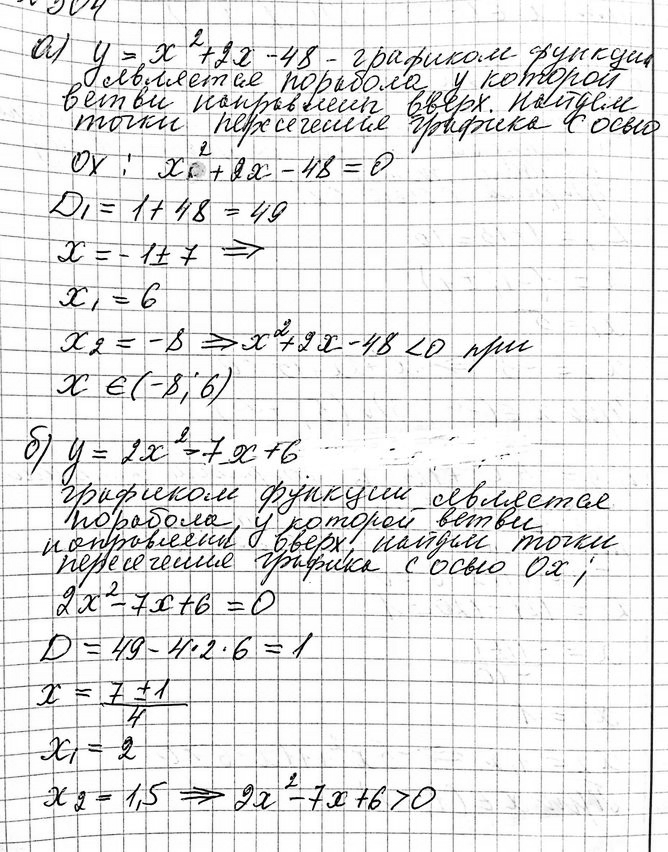 №304
а) y = x² + 2x - 48 - графиком функции
является порабола у которой
ветви направлены вверх. Найдем
точки пересечения графика с осью
Ox: x² + 2x - 48 = 0
D₁ = 1 + 48 = 49
x = -1 ± 7 ⇒
x₁ = 6
x₂ = -8 ⇒ x² + 2x - 48 < 0 при
x ∈ (-8; 6)
б) y = 2x² - 7x + 6
графиком функции является
порабола, у которой ветви
направлены вверх, найдем точки
пересечения графика с осью Ox;
2x² - 7x + 6 = 0
D = 49 - 4·2·6 = 1
x = (7 ± 1)/4
x₁ = 2
x₂ = 1,5 ⇒ 2x² - 7x + 6 > 0